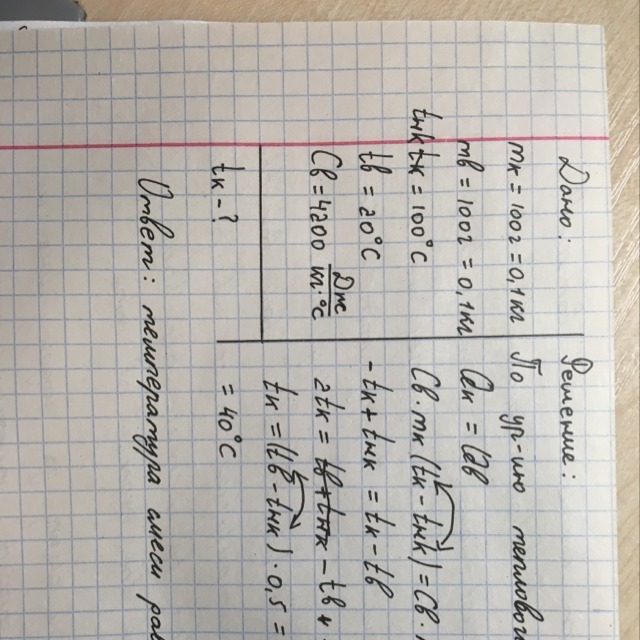 Дано:
mк = 100г = 0,1кг
mв = 100г = 0,1кг
tнк = 100°C
tв = 20°C
Cв = 4200 Дж/кг·°C
tк - ?
Решение:
По ур-ию теплового
Qк = Qв
Cв·mк (tк - tнк) = Cв·
-tк + tнк = tк - tв
2tк = - tв +
tк = (tв - tнк)·0,5 =
= 40°C
Ответ: температура смеси